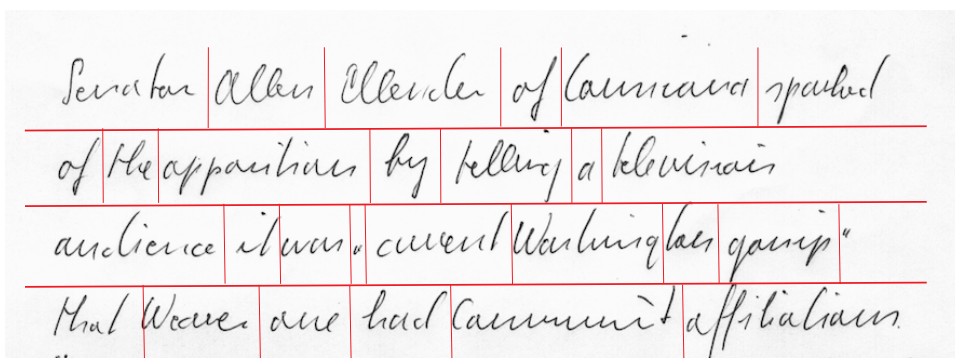 Senator Allen Ellender of Louisiana sparked
of the opposition by telling a television
audience it was "current Washington gossip"
that Weaver one had Communist affiliations.